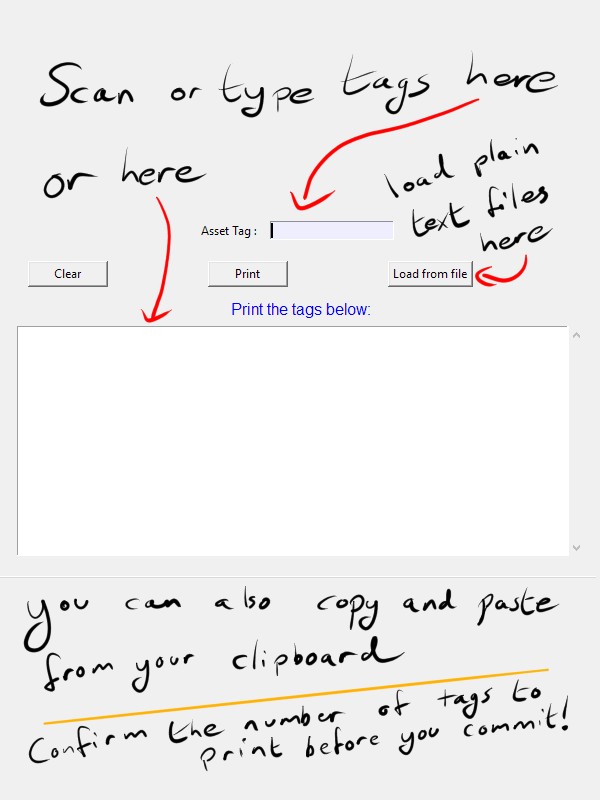 Scan or type tags here
or here
load plain
text files
here
Asset Tag :
Clear
Print
Load from file
Print the tags below:
you can also copy and paste
from your clipboard
Confirm the number of tags to
print before you commit!